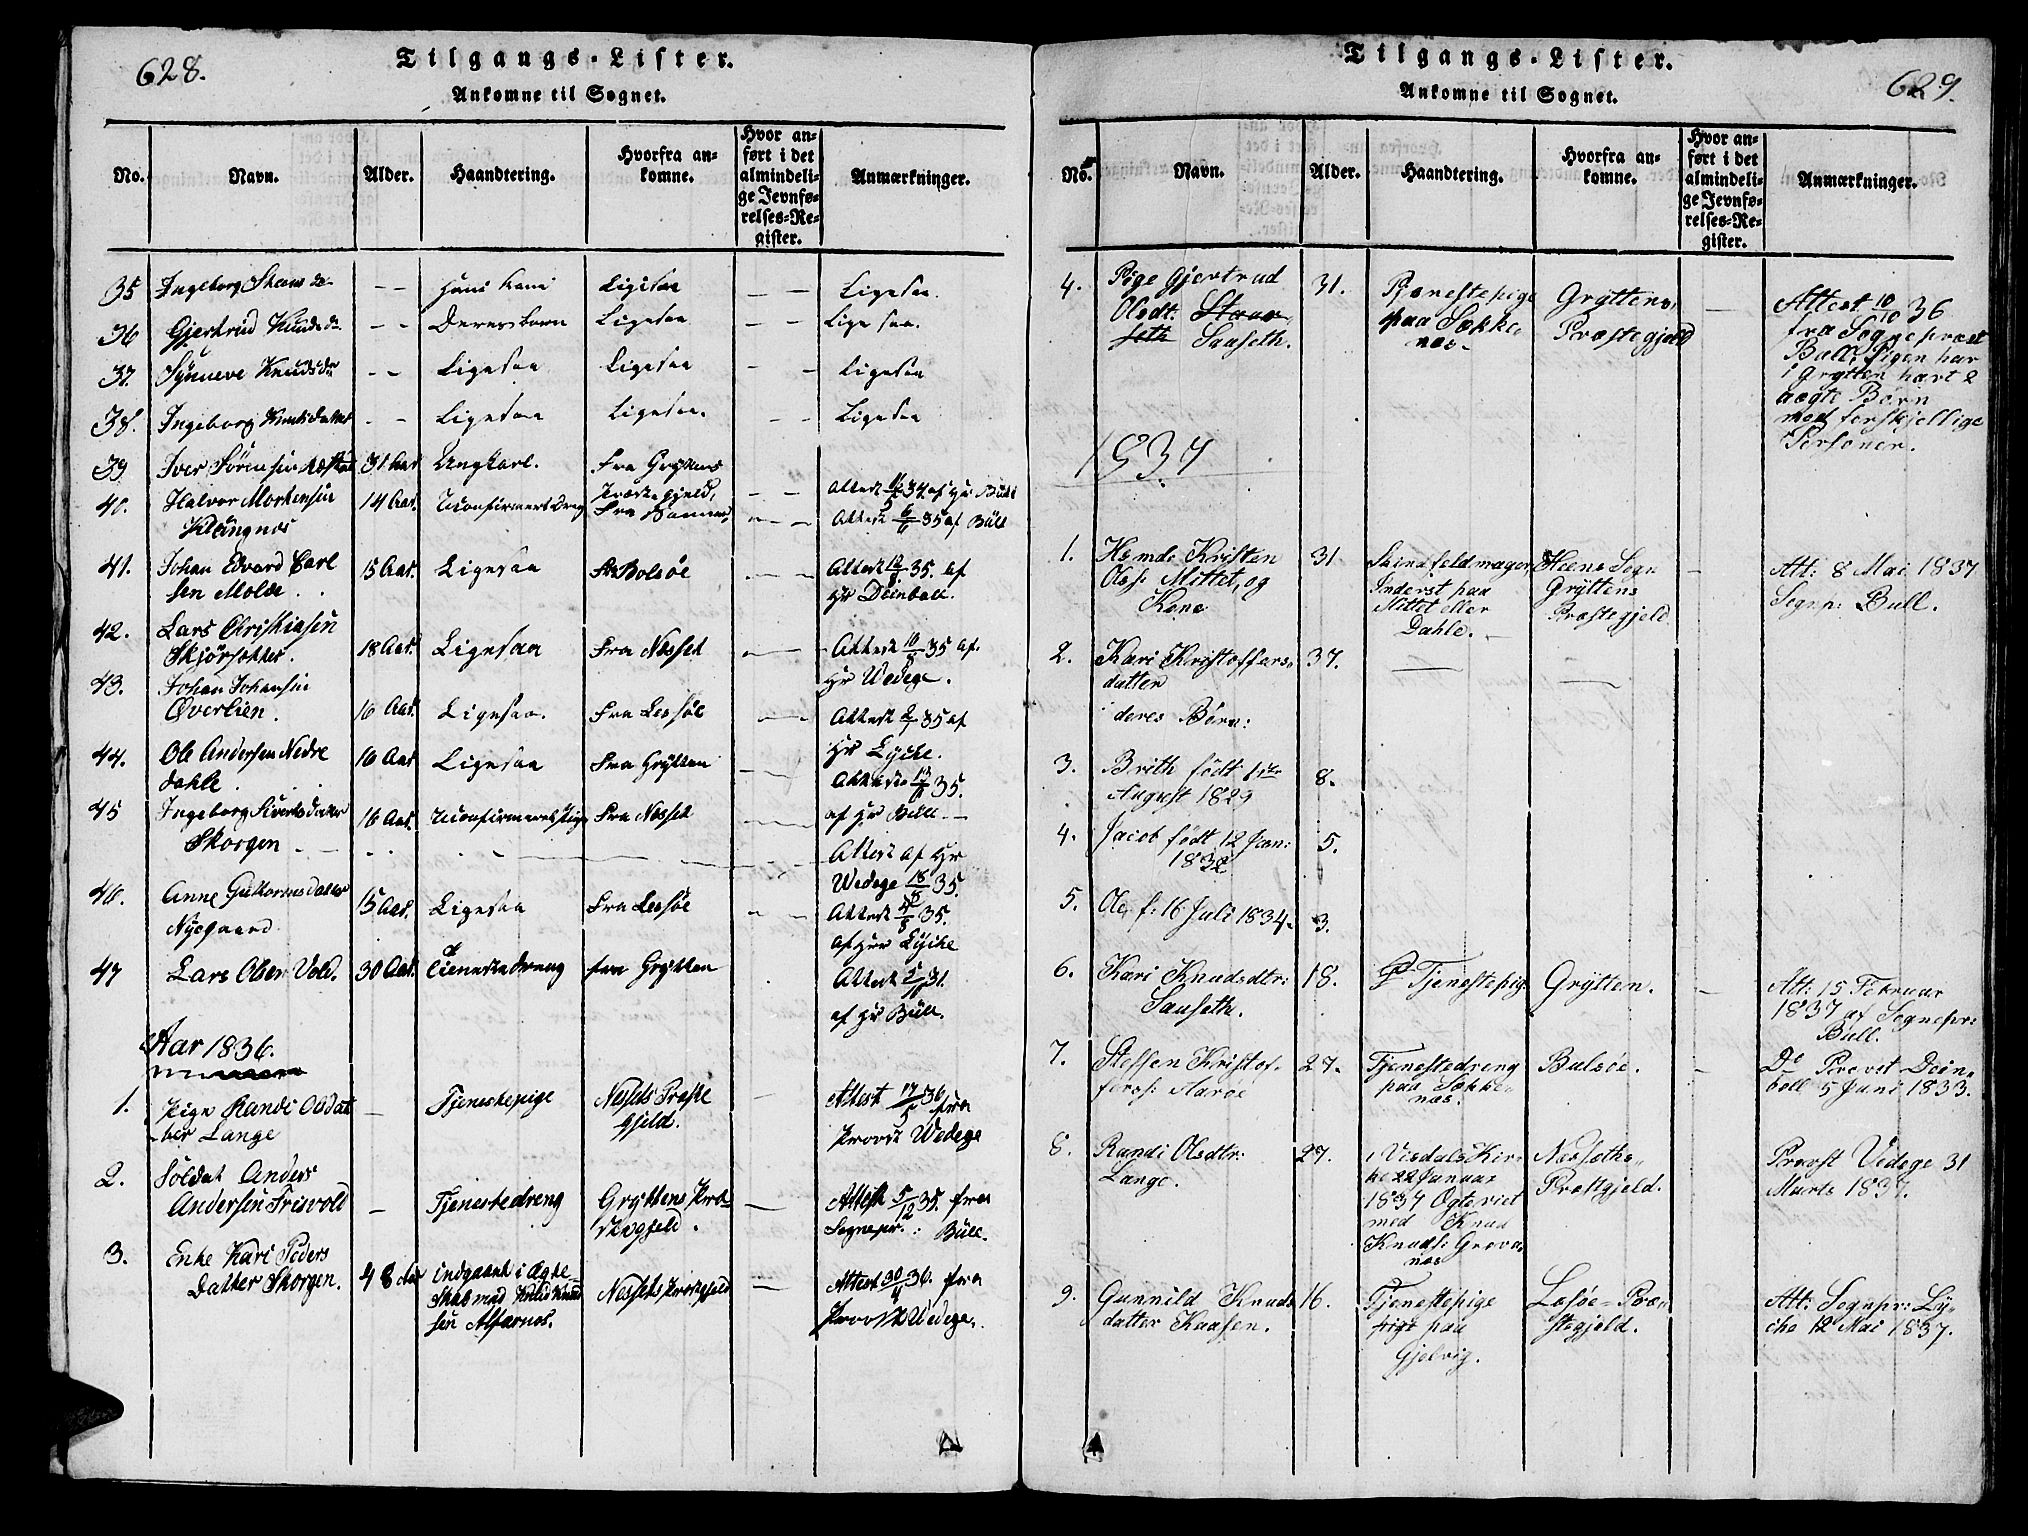 628.
Tilgangs-Lister.
Ankomne til Sognet.
No. Navn. Alder. Haandtering. Hvorfra an-
komne. Hvor an-
ført i det
almindeli-
ge Jevnfø-
relses-Re-
gister. Anmærkninger.
35 Ingeborg — — Ligesaa — — Ligesaa.
36 Gjertrud Knudsd. — — Deres barn Ligesaa — — Ligesaa.
37. Synneve Knudsdr — — Ligesaa Ligesaa — — Ligesaa
38. Ingeborg Knudsdatter — — Ligesaa Ligesaa. — — Ligesaa
39 Iver Sørensen 31 Aar Ungkarl. Fra Gryttens
Præstegjeld, — — Attest 34. af Hr Büll
40. Halvor Mortensen 14 Aar. Uconfirmert Dreng Fra — — Attest 6/6 35 af Büll
Klungnes
41. Johan Edvard Carl 15 Aar. Ligesaa Fra Bolsøe — — Attest 35. af
sen Molde . . Hr Deinboll.
42. Lars Christiansen
Skjørsætter. 18 Aar. Ligesaa Fra Nesset — — Attest 10/5 35 af.
Hr Wedege.
43. Johan Johansen
Øverlien. 16 Aar. Ligesaa. Fra Lessøe — — Attest 35 af
Hr Lyche.
44. Ole Andersen Nedre 16 Aar Ligesaa Fra Grytten — — Attest 35.
dahle af Hr Büll —
45 Ingeborg Sivertsdatter 16 Aar. Uconfirmert Pige Fra Nesset — —
Skorgen Attest af Hr
Wedege 18/5 35.
46. Anne Guttormsdatter 15 Aar. Ligesaa Fra Lessøe — — Attest 35.
Nysgaard af Hrr Lyche
47 Lars Olsen Vold. 30 Aar. Tienestedreng fra Grytten Attest 31.
af Hr Büll.
Aar 1836.
1. Pige Randi Olsdat — Tjenestepige Nessets Præste
gjeld. — Attest 17/5 36 fra
ter Lange Provst Wedege
2. Soldat Anders
Andersen Frisvold — Tjenestedreng Gryttens Præ
stegjeld. — Attest 5/12 35. fra
Sognepr.: Büll.
3. Enke Kari Peders
datter Skorgen. 48 Aar indgaaet i Ægte
skab med Knud Knud
sen Alfarnes. Nessets Præstegjeld — Attest 36. fra
Provst Wedege.
629.
Tilgangs-Lister.
Ankomne til Sognet.
No. Navn. Alder. Haandtering. Hvorfra an-
komne. Hvor an-
ført i det
almindeli-
ge Jevnfø-
relses-Re-
gister. Anmærkninger.
4. Pige Gjertrud
Olsdt:
Sauseth. 31. Tjenestepige
paa Sække-
næs- Gryttens
Præstegjeld — Attest 10/10 36
fra Sognepræst
Bull, Pigen har
i Grytten havt 2
uægte Børn
med forskjellige
Personer.
1837
1. Kristen
Olss: Mittet, og
Kone 31 Skindfeldmager,
Inderst paa
Mittet eller
Dahle. — Heens Sogn
Gryttens
Præstegjeld — Att: 8 Mai 1837
Sognp: Bull.
2. Kari Kristoffers-
datter 37. — —
deres Børn:
3. Brith født 1ste
August 1829 8.
4. Jacob født 12 Jan:
1832 5.
5. Ole f: 16 Juli 1834. 3.
6. Kari Knudsdtr:
Sauseth. 18. Tjenestepig Grytten. — Att: 15 Februar
1837 af Sognepr:
Bull.
7. Steffen Kristof-
fers: Aarøe 27. Tjenestedreng
paa Sække-
næs. Bolsøe. Do Provst Dein-
boll 5 Juni 1833.
8. Randi Olsdtr:
Lange. 27. i Visdals Kir-
ke 22 Januar
1837 Ægteviet
med Knud
Knuds: Grova-
næs Næssets
Præstgjeld. Provst Vedege 31
Marts 1837.
9. Gunnild Knuds
datter Kaasen. 16. Tjenestepige
paa
Gjelvig. Lesøe-Præ-
stegjeld. Att: Sognpr: Ly-
che 12 Mai 1837.